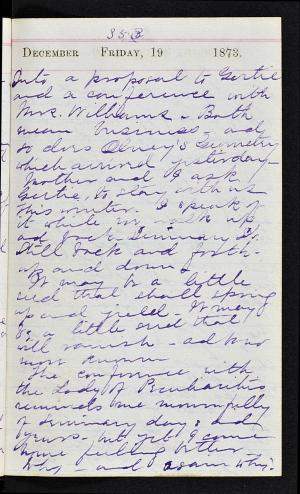 353
DECEMBER FRIDAY, 19 1873.
Into a proposal to Gertie
and a conference with
Mrs. Williams - Both
mean business - and
so does Olney's Geometry
which arrived yesterday -
Mother and I ask
Gertie, to stay with us
this winter. I speak of
it while we walk up
and Seminary St.
and forth -
up and down -
It may be a little
seed that shall spring
up and yield - It may
be a little seed that
will vanish - and be no
more known
The conference with
the Lady of Peculiarities
reminds me mournfully
of Seminary days : and
yours. but yet I come
home feeling better
Why - and again Why?